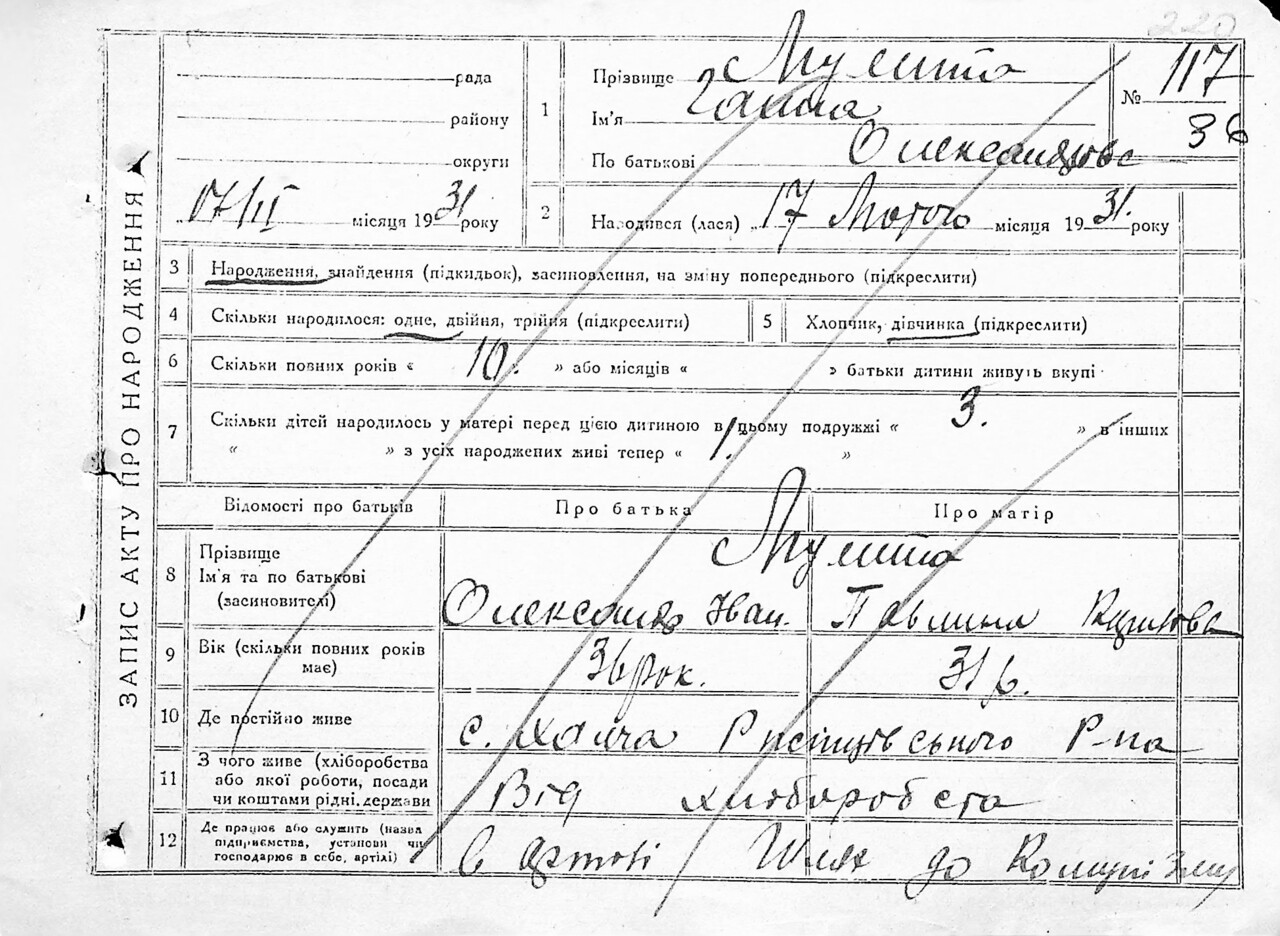 220
рада
району
округи
17/II місяця 1931 року
ЗАПИС АКТУ ПРО НАРОДЖЕННЯ
1 Прізвище
Ім'я Ганна
По батькові Олександровa
№ 117
36
2 Народився (лася) 17 Лютого місяця 1931. року
3 Народження, знайдення (підкидьок), засиновлення, на зміну попереднього (підкреслити)
4 Скільки народилося: одне, двійня, трійня (підкреслити)
5 Хлопчик, дівчинка (підкреслити)
6 Скільки повних років « 10. » або місяців « » батьки дитини живуть вкупі
7 Скільки дітей народилось у матері перед цією дитиною в цьому подружжі « 3. » в інших
« » з усіх народжених живі тепер « 1. »
Відомості про батьків Про батька Про матір
8 Прізвище
Ім'я та по батькові
(засиновителі)
Олександр Іван.
9 Вік (скільки повних років
має)
36 рок. 31 р.
10 Де постійно живе
с. Халча Р-на
11 З чого живе (хліборобства
або якої роботи, посади
чи коштами рідні, держави
Від хліборобства
12 Де працює або служить (назва
підприємства, установи чи
господарює в себе, артілі)
в артілі Шлях до Комунізму